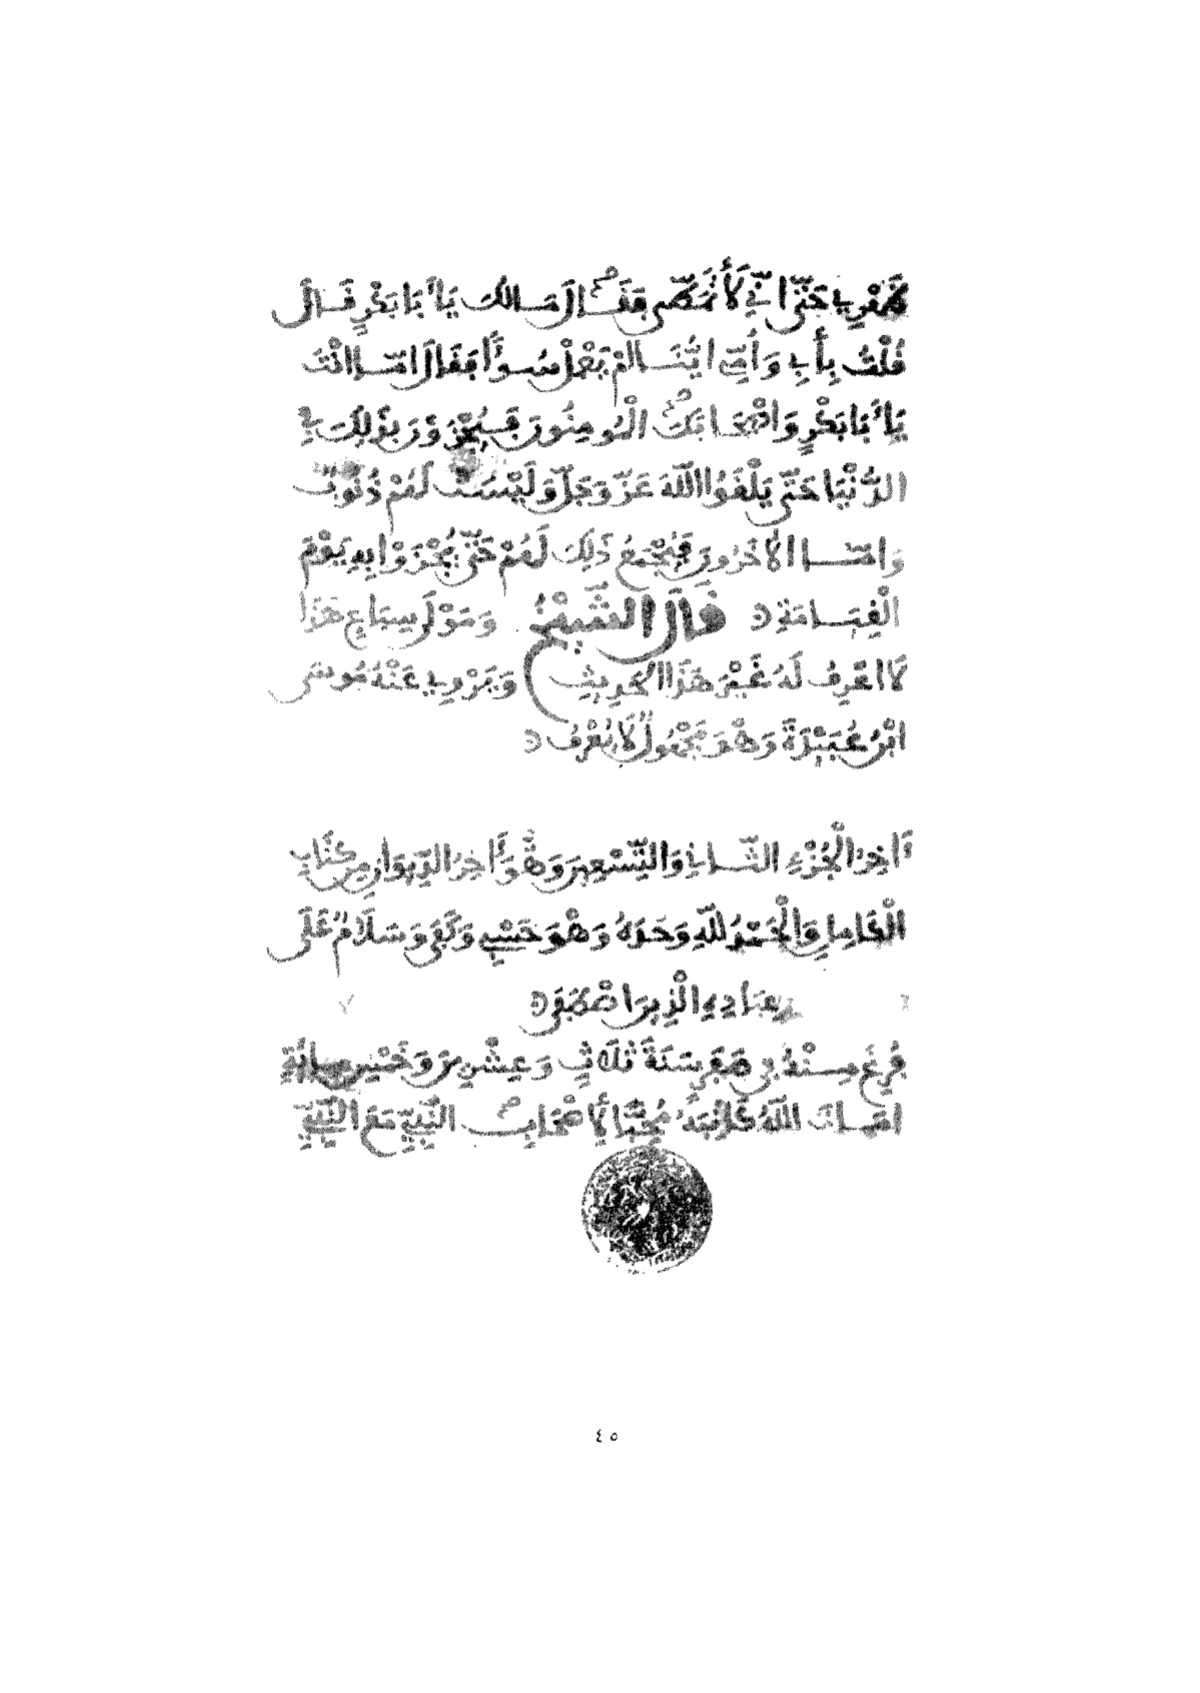 ظَهْرِي حَتَّى اِنِّي لَأَتَمَطَّى فَقَالَ مَالَكَ يَا أَبَا بَكْرٍ قَالَ
قُلْتُ بِأَبِي وَأُمِّي ايُّنَا لَمْ يَعْمَلْ سُوءًا فَقَالَ امَّا انْتَ
يَا أَبَا بَكْرٍ وَاصْحَابُكَ الْمُومِنُونَ فَيُجْزَوْنَ بِذَلِكَ فِي
الدُّنْيَا حَتَّى يَلْقَوُا اللَّهَ عَزَّ وَجَلَّ وَلَيْسَتْ لَهُمْ ذُنُوبٌ
وَامَّا الْآخَرُونَ فَيُجْمَعُ ذَلِكَ لَهُمْ حَتَّى يُجْزَوْا بِهِ يَوْمَ
الْقِيَامَةِ قَالَ الشَّيْخُ وَمَوْلَى سِبَاعٍ هَذَا
لَا اعْرِفُ لَهُ غَيْرَ هَذَا الْحَدِيثِ وَيَرْوِي عَنْهُ مُوسَى
ابْنُ عُبَيْدَةَ وَهْوَ مَجْهُولٌ لَا يُعْرَفُ
آخِرُ الْجُزْءِ الثَّانِي وَالتِّسْعِينَ وَهْوَ آخِرُ الدِّيوَانِ مِنْ كِتَابِ
الْكَامِلِ وَالْحَمْدُ لِلَّهِ وَحْدَهُ وَهْوَ حَسْبِي وَكَفَى وَسَلَامٌ عَلَى
عِبَادِهِ الَّذِينَ اصْطَفَى
فُرِغَ مِنْهُ فِي صَفَرِ سَنَةَ ثَلَاثٍ وَعِشْرِينَ وَخَمْسِ مِائَةٍ
امَاتَ اللَّهُ كَاتِبَهُ مُحِبًّا لِأَصْحَابِ النَّبِيِّ مَعَ النَّبِيِّ
٤٥